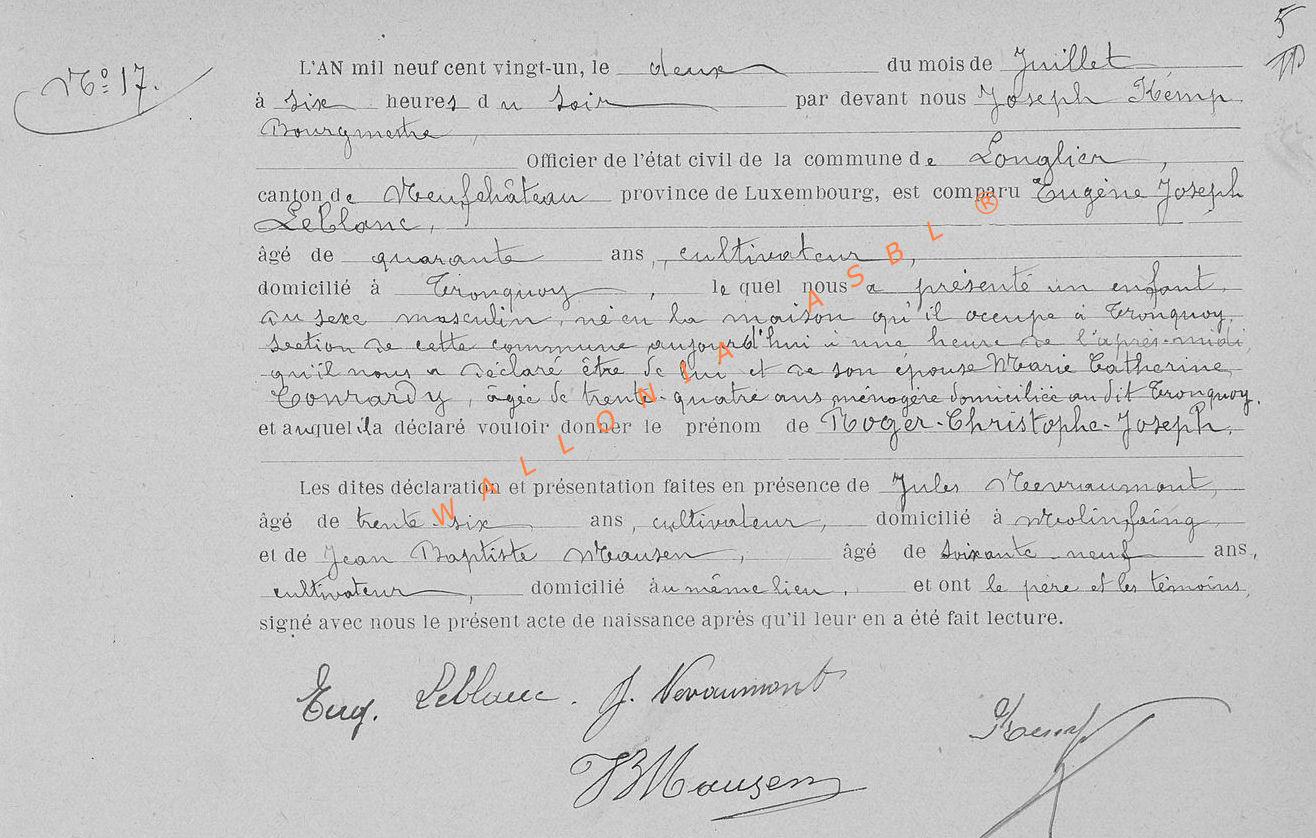 5
No 17.
L'AN mil neuf cent vingt-un, le deux du mois de Juillet
à six heures du soir par devant nous Joseph Kemp
Bourgmestre,
Officier de l'état civil de la commune de Longlier,
canton de Neufchâteau province de Luxembourg, est comparu Eugène Joseph
Leblanc,
âgé de quarante ans, cultivateur,
domicilié à Tronquoy, lequel nous a présenté un enfant,
du sexe masculin, né en la maison qu'il occupe à Tronquoy,
section de cette commune aujourd'hui à une heure de l'après-midi,
qu'il nous a déclaré être de lui et de son épouse Marie Catherine
Conrardy, âgée de trente-quatre ans ménagère domiciliée au dit Tronquoy.
et auquel il a déclaré vouloir donner le prénom de Roger-Christophe-Joseph.
Les dites déclaration et présentation faites en présence de Jules Nevraumont,
âgé de trente-six ans, cultivateur, domicilié à Molinfaing,
et de Jean Baptiste Mausen, âgé de soixante-neuf ans,
cultivateur, domicilié au même lieu, et ont le père et les témoins,
signé avec nous le présent acte de naissance après qu'il leur en a été fait lecture.
Eug. Leblanc. J. Nevraumont
Kemp
JB Mausen
WALLONIA ASBL ®